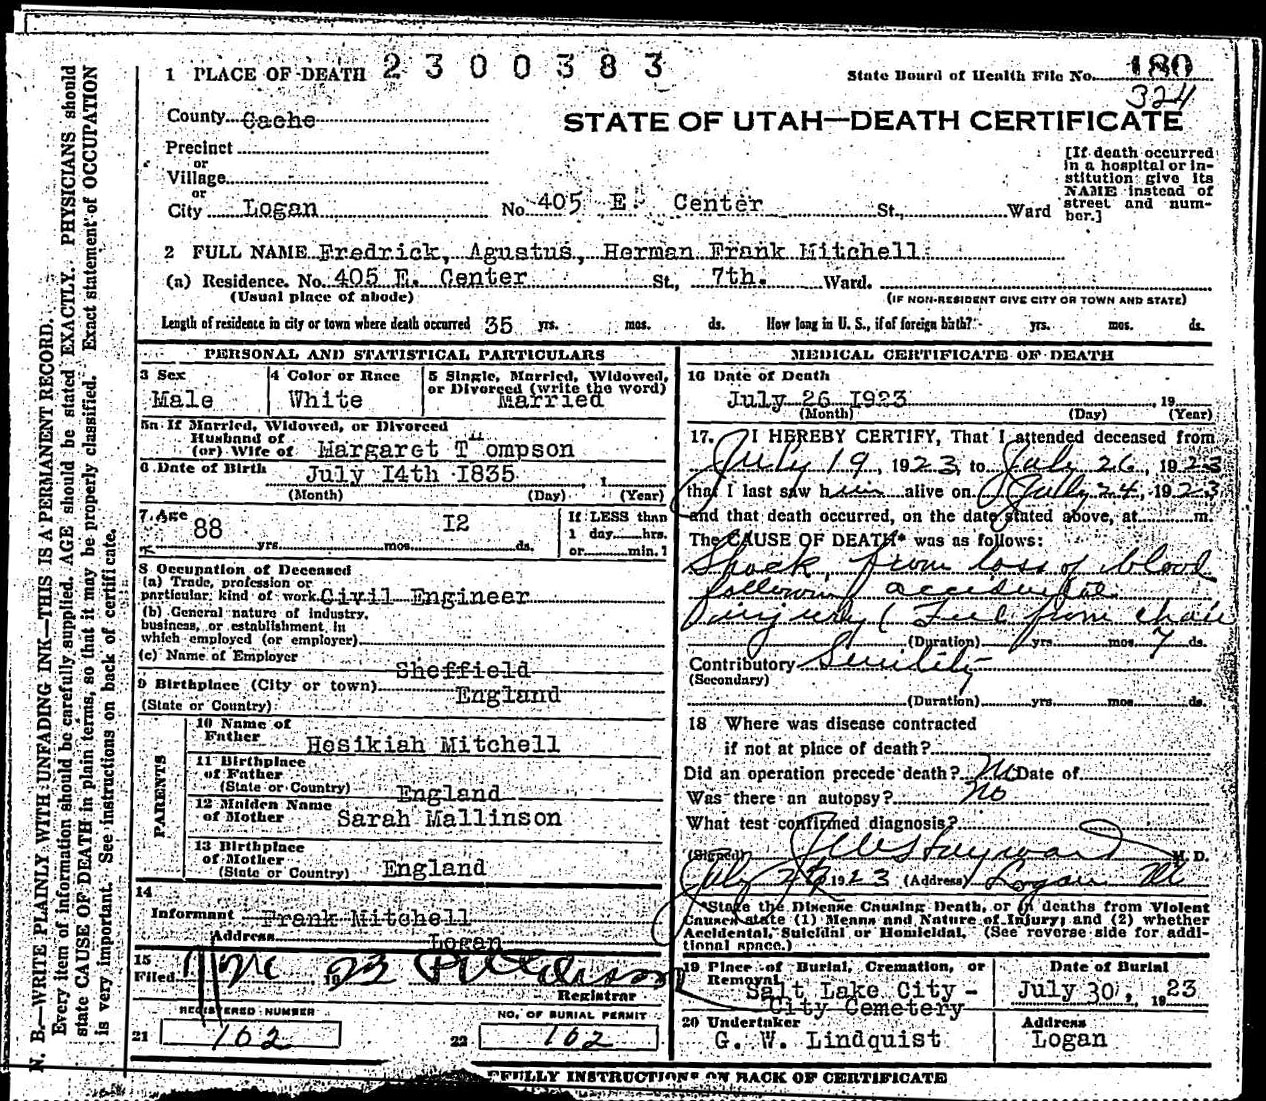 1 PLACE OF DEATH 2300383
State Board of Health File No. 180
324
County Cache
STATE OF UTAH—DEATH CERTIFICATE
Precinct
or
Village
or
City Logan No. 405 E. Center St., Ward
[If death occurred
in a hospital or in-
stitution give its
NAME instead of
street and num-
ber.]
2 FULL NAME Fredrick, Agustus, Herman Frank Mitchell
(a) Residence. No. 405 E. Center St., 7th. Ward.
(Usual place of abode) (IF NON-RESIDENT GIVE CITY OR TOWN AND STATE)
Length of residence in city or town where death occurred 35 yrs. mos. ds. How long in U. S., if of foreign birth? yrs. mos. ds.
PERSONAL AND STATISTICAL PARTICULARS
3 Sex
Male
4 Color or Race
White
5 Single, Married, Widowed,
or Divorced (write the word)
Married
5a If Married, Widowed, or Divorced
Husband of
(or) Wife of Margaret Thompson
6 Date of Birth July 14th 1835
(Month) (Day) (Year)
7 Age
88 yrs. mos. 12 ds.
If LESS than
1 day hrs.
or min. ?
8 Occupation of Deceased
(a) Trade, profession or
particular kind of work Civil Engineer
(b) General nature of industry,
business, or establishment in
which employed (or employer)
(c) Name of Employer
Sheffield
9 Birthplace (City or town)
England
(State or Country)
PARENTS
10 Name of
Father Hesikiah Mitchell
11 Birthplace
of Father
(State or Country) England
12 Maiden Name
of Mother Sarah Mallinson
13 Birthplace
of Mother
(State or Country) England
14
Informant Frank Mitchell
Address Logan
15
Filed 1923
Registrar
REGISTERED NUMBER
21 102
NO. OF BURIAL PERMIT
22 102
MEDICAL CERTIFICATE OF DEATH
16 Date of Death
July 26 1923 , 19
(Month) (Day) (Year)
17. I HEREBY CERTIFY, That I attended deceased from
July 19, 1923, to July 26, 1923
that I last saw him alive on July 24, 1923
and that death occurred, on the date stated above, at m.
The CAUSE OF DEATH* was as follows:
Shock, from loss of blood
following accidental
injury (Fell from chair
(Duration) yrs. mos. 7 ds.
Contributory Senility
(Secondary)
(Duration) yrs. mos. ds.
18 Where was disease contracted
if not at place of death?
Did an operation precede death? No Date of
Was there an autopsy? No
What test confirmed diagnosis?
(Signed) Hayward M. D.
July 1923 (Address) Logan
*State the Disease Causing Death, or in deaths from Violent
Causes state (1) Means and Nature of Injury; and (2) whether
Accidental, Suicidal or Homicidal. (See reverse side for addi-
tional space.)
19 Place of Burial, Cremation, or
Removal
Salt Lake City -
City Cemetery
Date of Burial
July 30, 1923
20 Undertaker
G. W. Lindquist
Address
Logan
FULLY INSTRUCTIONS ON BACK OF CERTIFICATE
N. B.—WRITE PLAINLY WITH UNFADING INK—THIS IS A PERMANENT RECORD.
Every item of information should be carefully supplied. AGE should be stated EXACTLY. PHYSICIANS should
state CAUSE OF DEATH in plain terms, so that it may be properly classified. Exact statement of OCCUPATION
is very important. See instructions on back of certificate.